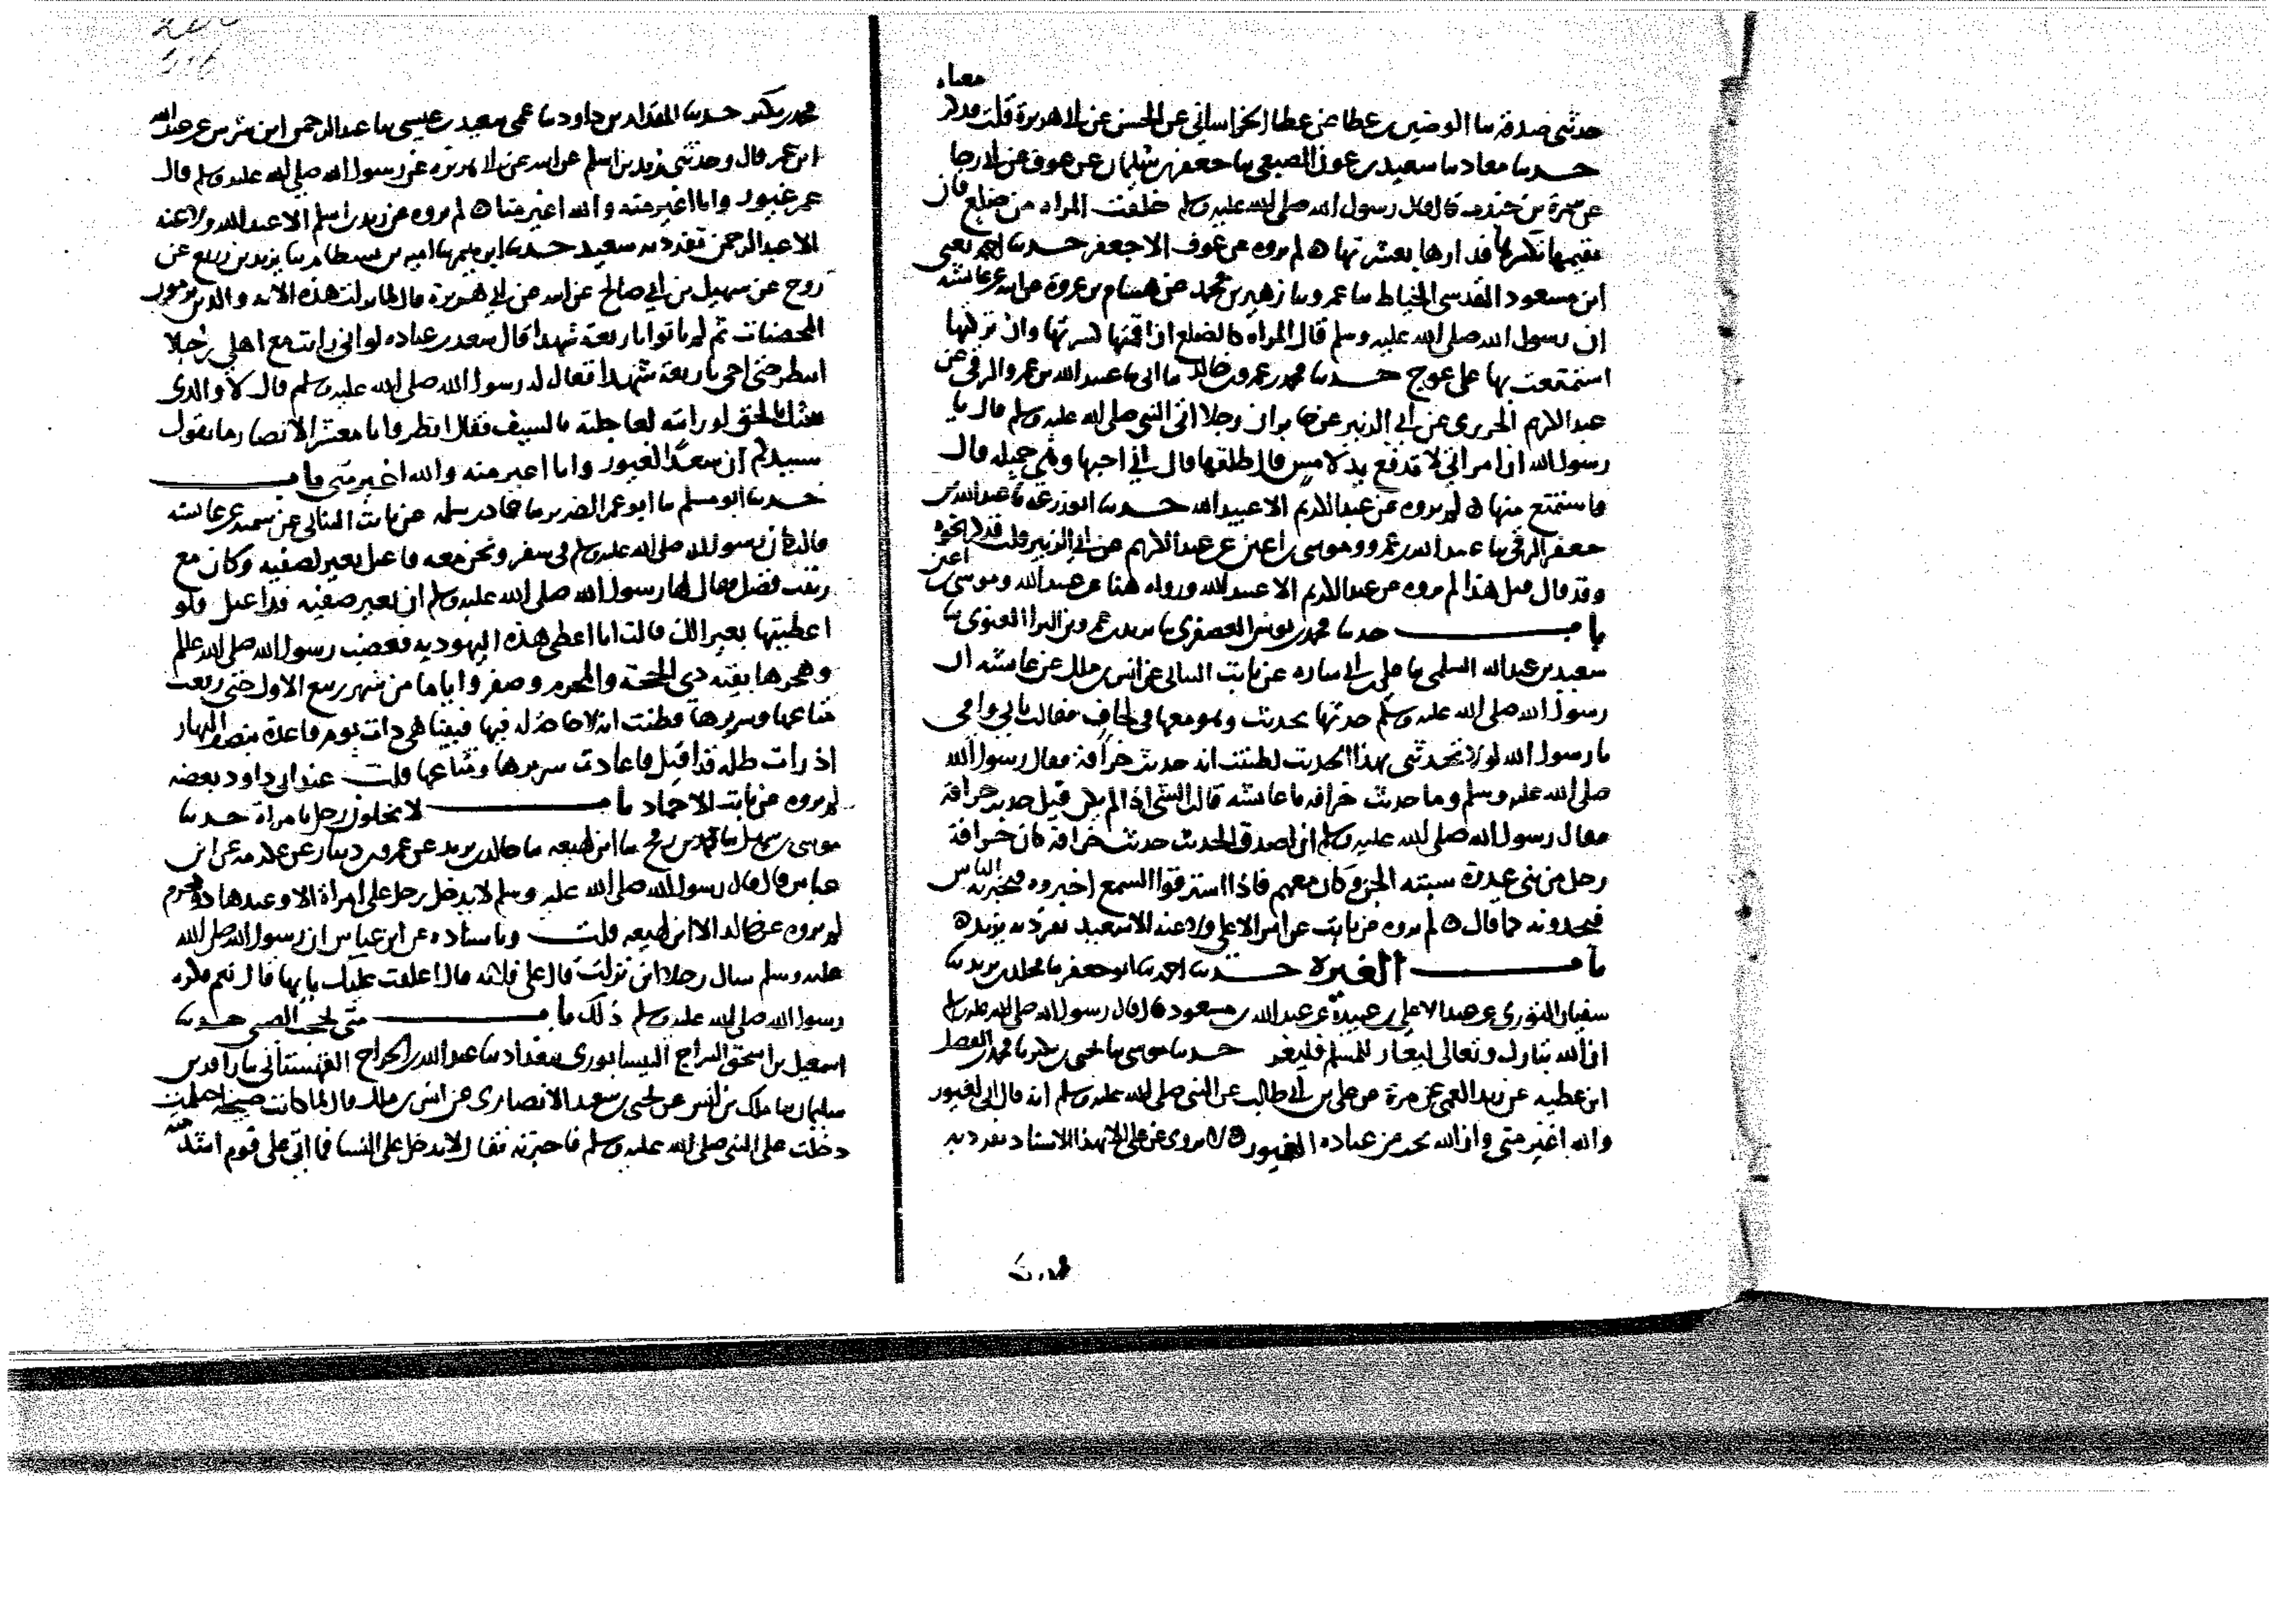 معناه
حدثني صدقة ثنا الوضين بن عطا عن عطا الخراساني عن الحسن عن ابي هريرة قلت فذكر
حدثنا معاذ ثنا سعيد بن عون الضبعي ثنا جعفر بن سليمان عن عوف عن ابي رجا
عن سمرة بن جندب قال قال رسول الله صلى الله عليه وسلم خلقت المراه من ضلع فان
تقيمها تكسرها فدارها بعش بها لم يروه عن عوف الا جعفر حدثنا احمد يعني
ابن مسعود المقدسي الخياط ثنا عمرو ثنا زهير بن محمد عن هشام بن عروة عن ابيه عن عائشه
ان رسول الله صلى الله عليه وسلم قال المراه كالضلع ان اقمتها كسرتها وان تركتها
استمتعت بها على عوج حدثنا محمد بن عمرو بن خالد ثنا ابي ثنا عبيد الله بن عمرو الرقي عن
عبد الكريم الجزري عن ابي الزبير عن جابر ان رجلا اتى النبي صلى الله عليه وسلم قال يا
رسول الله ان امراتي لا تدفع يد لامس قال طلقها قال اني احبها وهي جميله قال
فاستمتع منها لم يروه عن عبد الكريم الا عبيد الله حدثنا ابو زرعه ثنا عبد الله بن
جعفر الرقي ثنا عبيد الله بن عمرو وموسى بن اعين عن عبد الكريم عن ابي الزبير قلت فذكر نحوه
وقد قال قبل هذا لم يروه عن عبد الكريم الا عبيد الله ورواه هنا عن عبيد الله وموسى بن اعين
باب حدثنا محمد بن يونس العصفري ثنا يزيد بن عمرو بن البرا الغنوي ثنا
سعيد بن عبد الله السلمي ثنا علي بن ابي ساره عن ثابت البناني عن انس بن ملك عن عائشه ان
رسول الله صلى الله عليه وسلم حدثها بحديث وهو معها في لحاف فقالت بابي وامي
يا رسول الله لولا تحدثني بهذا الحديث لظننت انه حديث خرافة فقال رسول الله
صلى الله عليه وسلم وما حديث خرافه يا عائشه قالت الشي اذا لم يكن قيل حديث خرافة
فقال رسول الله صلى الله عليه وسلم ان اصدق الحديث حديث خرافة كان خرافة
رجل من بني عذرة سبته الجن وكان معهم فاذا استرقوا السمع اخبروه فيخبر به الناس
فيجدونه كما قال لم يروه عن ثابت عن انس الا علي ولا عنه الا سعيد تفرد به يزيد
باب الغيرة حدثنا احمد ثنا ابو جعفر ثنا مخلد بن يزيد ثنا
سفيان الثوري عن عبد الاعلى عن عبيدة عن عبد الله بن مسعود قال قال رسول الله صلى الله عليه وسلم
ان الله تبارك وتعالى ليغار للمسلم فليغر حدثنا موسى ثنا يحيى بن بكير ثنا محمد بن الفضل
ابن عطيه عن زيد العمي عن مرة عن علي بن ابي طالب عن النبي صلى الله عليه وسلم انه قال اني لغيور
والله اغير مني وان الله يحب من عباده الغيور لا يروى عن علي الا بهذا الاسناد تفرد به
محمد بن بكير حدثنا المقدام بن داود ثنا عمي سعيد بن عيسى ثنا عبد الرحمن ابن بشر عن عبد الله
ابن عمر قال وحدثني زيد بن اسلم عن ابيه عن ابي هريره عن رسول الله صلى الله عليه وسلم قال
عمر غيور وانا اغير منه والله اغير منا لم يروه عن زيد بن اسلم الا عبد الله ولا عنه
الا عبد الرحمن تفرد به سعيد حدثنا ابراهيم ثنا اميه بن بسطام ثنا يزيد بن زريع عن
روح عن سهيل بن ابي صالح عن ابيه عن ابي هريرة قال لما نزلت هذه الايه والذين يرمون
المحصنات ثم لم ياتوا باربعة شهدا قال سعد بن عباده لو اني رايت مع اهلي رجلا
انتظر حتى اجي باربعة شهدا فقال له رسول الله صلى الله عليه وسلم قال لا والذي
بعثك بالحق لو رايته لعاجلته بالسيف فقال انظروا يا معشر الانصار ما يقول
سيدكم ان سعدا لغيور وانا اغير منه والله اغير مني باب
حدثنا ابو مسلم ثنا ابو عمر الضرير ثنا حماد بن سلمه عن ثابت البناني عن سميه عن عائشه
قالت كان رسول الله صلى الله عليه وسلم في سفر ونحن معه فاعتل بعير لصفيه وكان مع
زينب فضل فقال لها رسول الله صلى الله عليه وسلم ان بعير صفيه قد اعتل فلو
اعطيتها بعيرا لك قالت انا اعطي هذه اليهوديه فغضب رسول الله صلى الله عليه وسلم
وهجرها بقية ذي الحجة والمحرم وصفر واياما من شهر ربيع الاول حتى رفعت
متاعها وسريرها وظنت انه لا حاجة له فيها فبينا هي ذات يوم قاعدة بنصف النهار
اذ رات ظله قد اقبل فاعادت سريرها ومتاعها قلت عند ابي داود بعضه
لم يروه عن ثابت الا حماد باب لا يخلون رجل بامراة حدثنا
موسى بن سهل ثنا محمد بن رمح ثنا ابن لهيعه ثنا خالد بن يزيد عن عمرو بن دينار عن عكرمه عن ابن
عباس قال قال رسول الله صلى الله عليه وسلم لا يدخل رجل على امراة الا وعندها ذو محرم
لم يروه عن خالد الا ابن لهيعه قلت وباسناده عن ابن عباس ان رسول الله صلى الله
عليه وسلم سال رجلا اين نزلت قال على فلانه قال اغلقت عليك بابها قال نعم فكره
رسول الله صلى الله عليه وسلم ذلك باب متى يحجب الصبي حدثنا
اسمعيل بن اسحق السراج النيسابوري ببغداد ثنا عبد الله بن الجراح القهستاني ثنا زافر بن
سليمان ثنا ملك بن انس عن يحيى بن سعيد الانصاري عن انس بن ملك قال لما كانت صبيحة احتلمت
دخلت على النبي صلى الله عليه وسلم فاخبرته فقال لا تدخل على النسا فما اتى علي يوم اشد منه